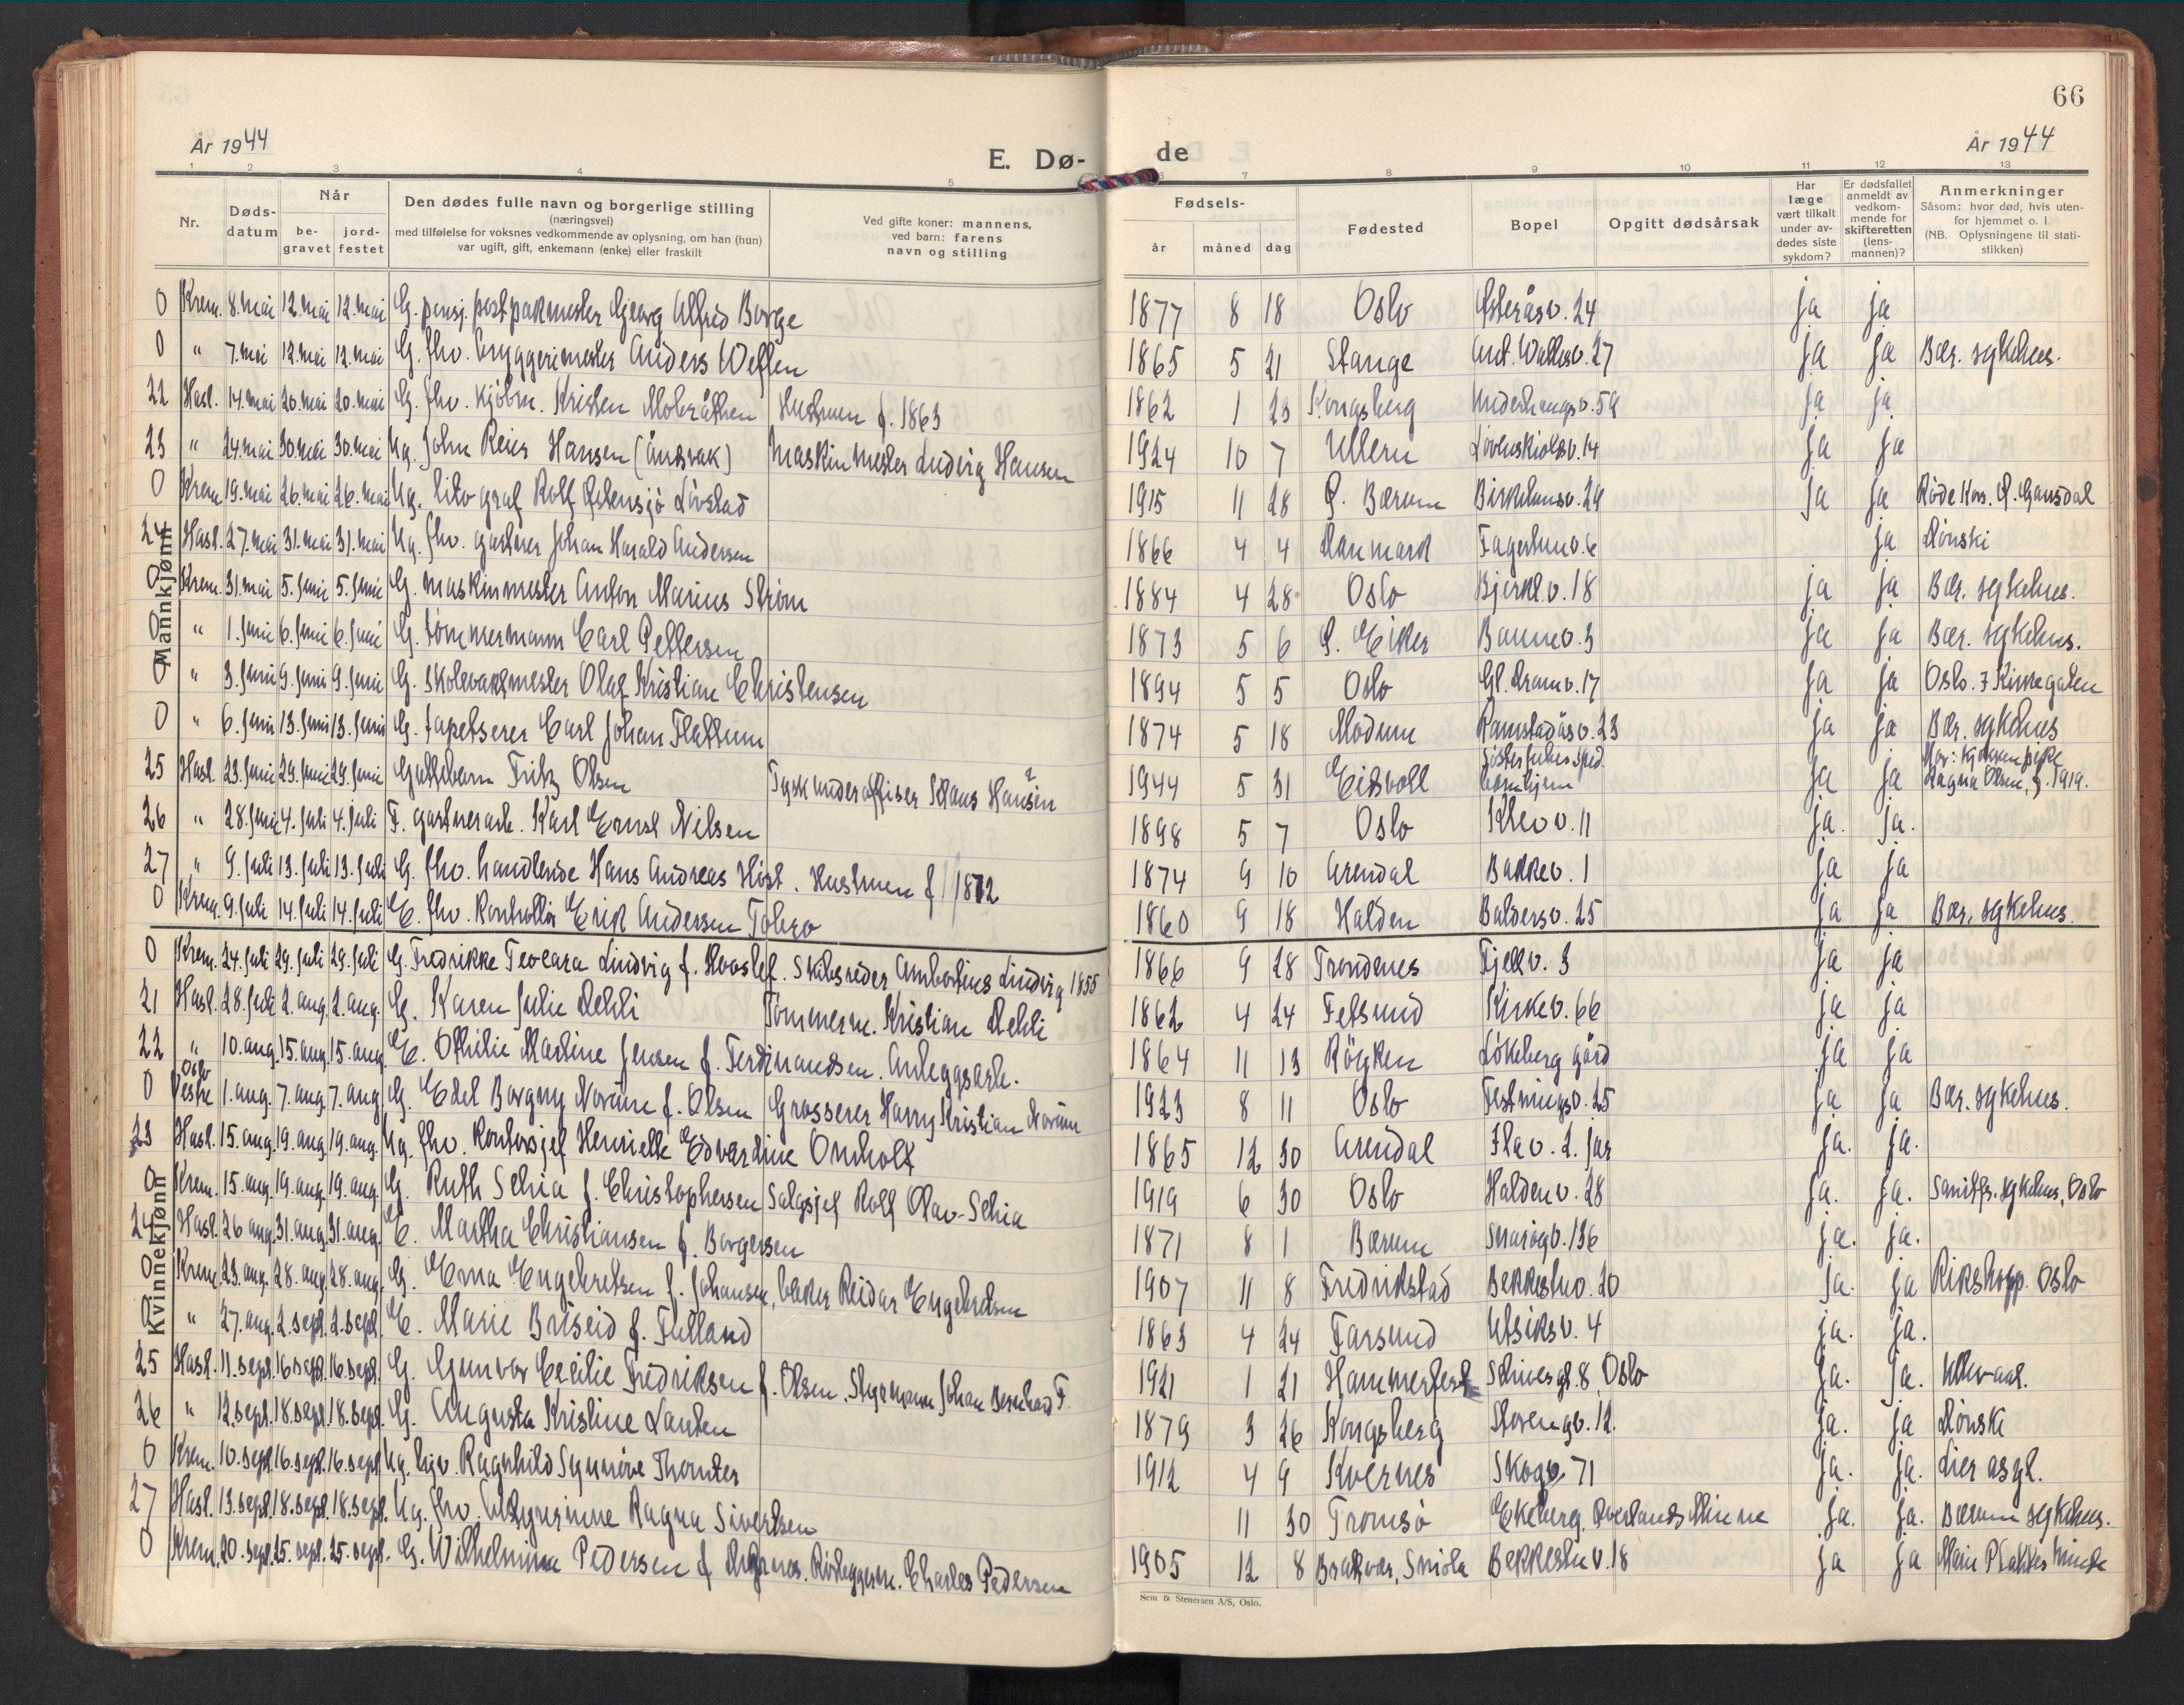 66
År 1944
E. Dø-
de
År 1944
1 2 3 4 5
7 8 9 10 11 12 13
Nr.
Døds-
datum
Når
be-
gravet
jord-
festet
Den dødes fulle navn og borgerlige stilling
(næringsvei)
med tilføielse for voksnes vedkommende av oplysning, om han (hun)
var ugift, gift, enkemann (enke) eller fraskilt
Ved gifte koner: mannens,
ved barn: farens
navn og stilling
Fødsels-
år måned dag
Fødested
Bopel
Opgitt dødsårsak
Har
læge
vært tilkalt
under av-
dødes siste
sykdom?
Er dødsfallet
anmeldt av
vedkom-
mende for
skifteretten
(lens-
mannen)?
Anmerkninger
Såsom: hvor død, hvis uten-
for hjemmet o. l.
(NB. Oplysningene til stati-
stikken)
Mannkjønn
0 Krem. 8. mai 12. mai 12. mai G. pensj. postpakmester Georg Alfred Borge 1877 8 18 Oslo Østeråsv. 24 ja ja
0 " 7. mai 12. mai 12. mai G. fhv. bryggerimester Anders Weften 1865 5 21 Stange Ant. Wallesv. 27 ja ja Bær. sykehus.
22 Hasl. 14. mai 20. mai 20. mai G. fhv. kjøbm. Kristen Mobråthen Hustruen f. 1863 1862 1 23 Kongsberg ja ja
23 " 24. mai 30. mai 30. mai Ug. John Reier Hansen (åndsvak) Maskinmester Ludvig Hansen 1924 10 7 Ullern Løvenskioldsv. 14 ja ja
0 Krem. 19. mai 26. mai 26. mai Ug. litograf Rolf Østensjø Livstad 1915 11 28 Ø. Bærum Birkelunsv. 29 ja ja Røde Kors. Ø. Gausdal
24 Hasl. 27. mai 31. mai 31. mai Ug. fhv. gartner Johan Harald Andersen 1866 4 4 Danmark Fagertunv. 6 ja Dønski
0 Krem. 31. mai 5. juni 5. juni G. maskinmester Anton Marius Strøm 1884 4 28 Oslo Bjerkl.v. 18 ja ja Bær. sykehus.
0 " 1. juni 6. juni 6. juni G. tømmermann Carl Pettersen 1873 5 6 Ø. Eiker Baunev. 3 ja ja Bær. sykehus.
0 " 3. juni 9. juni 9. juni G. skolevaktmester Olaf Kristian Christensen 1894 5 5 Oslo Gl. Dram.v. 17 ja ja Oslo. 7 Kirkegaten
0 " 6. juni 13. juni 13. juni G. tapetserer Carl Johan Flattum 1874 5 18 Modum Ramstadåsv. 23 ja ja Bær. sykehus
25 Hasl. 23. juni 29. juni 29. juni Guttebarn Fritz Olsen Tysk underoffiser Klaus Hansen ? 1944 5 31 Eidsvoll ja ja Mor: Kjøkkenpike
Ragna Olsen, f. 1919.
26 " 28. juni 4. juli 4. juli F. gartnerarb. Karl Ernst Nilsen 1898 5 7 Oslo Kleivv. 11 ja. ja.
27 " 9. juli 13. juli 13. juli G. fhv. handlende Hans Andreas Høst. Hustruen f. 1872 1874 9 10 Arendal Bakkev. 1 ja ja
0 Krem. 9. juli 14. juli 14. juli E. fhv. kontrollør Erik Andersen Tobro 1860 9 18 Halden Baldersv. 25 ja ja Bær. sykehus.
Kvinnekjønn
0 Krem. 24. juli 29. juli 29. juli G. Fredrikke Lindvig f. Skibsreder Ambortius Lindvig 1855 1866 9 28 Trondenes Fjellv. 3 ja ja
21 Hasl. 28. juli 2. aug. 2. aug. G. Karen Julie Dehli Tømmerm. Kristian Dehli 1862 4 24 Fetsund Kirkev. 66 ja ja
22 " 10. aug. 15. aug. 15. aug. E. Othilie Martine Jensen f. Ferdinandsen. Anleggsarb. 1864 11 13 Røyken Løkeberg gård ja ja
0 Oslo Vestre 1. aug. 7. aug. 7. aug. G. Edel Borgny Norum f. Olsen Grosserer Harry Kristian Norum 1923 8 11 Oslo Festningsv. 25 ja ja Bær. sykehus.
23 Hasl. 15. aug. 19. aug. 19. aug. Ug. fhv. kontorsjef Henriette Edvardine Omholt 1865 12 30 Arendal Ilav. 2. Jar ja. ja.
0 Krem. 15. aug. 19. aug. 19. aug. G. Ruth Schia f. Christophersen Salgsjef Rolf Olav Schia 1919 6 30 Oslo Haldenv. 28 ja. ja. Sanitfs. sykehus, Oslo
24 Hasl. 26 aug. 31. aug. 31. aug. E. Martha Christiansen f. Borgersen 1871 8 1 Bærum Snarøyv. 136 ja. ja.
0 Krem. 23. aug. 28. aug. 28. aug. G. Erna Engebretsen f. Johansen, baker Reidar Engebretsen 1907 11 8 Fredrikstad Bekkestuv. 20 ja. ja Rikshosp. Oslo
0 " 27. aug. 2. sept. 2. sept. E. Marie Briseid f. Fulland 1863 4 24 Farsund Utsiktsv. 4 ja. ja.
25 Hasl. 11. sept. 16 sept. 16. sept. G. Gunvor Cecilie Fredriksen f. Olsen. Styrmann Johan Bernhard F. 1921 1 21 Hammerfest Schivesgt. 8 Oslo ja. ja. Ullevaal.
26 " 12. sept. 18. sept. 18. sept. G. Augusta Kristine Lauten 1879 3 26 Kongsberg Storengv. 12. ja. ja Dønski
0 Krem. 10. sept. 16. sept. 16. sept. Ug. Ragnhild Synnøve Thomter 1912 4 9 Kvernes Skogv. 71 ja. ja. Lier asyl.
27 Hasl. 13. sept. 18. sept. 18. sept. Ug. fhv. Ragna Sivertsen 11 30 Tromsø Ekeberg, Øverlands Minne ja. ja. Bærum sykehus.
0 Krem. 20. sept. 25. sept. 25. sept. G. Wilhelmine Pedersen f. Charles Pedersen 1905 12 8 Smøla Bekkestuv. 18 ja ja Marie Plahtes Minde
Sem & Stenersen A/S, Oslo.